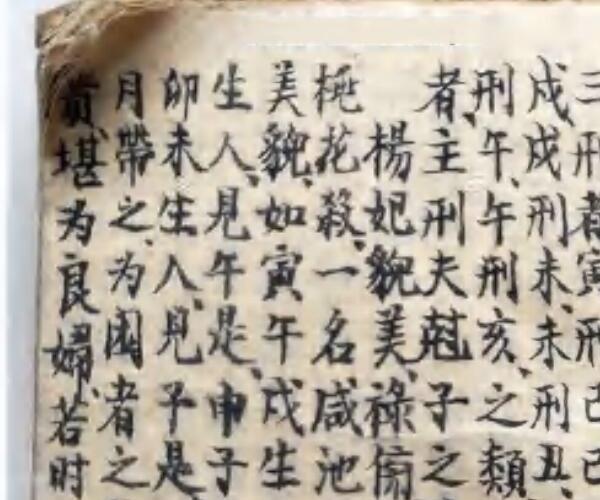 三刑者寅刑己己
戍戍刑未未刑丑
刑午午刑亥之類
者主刑夫尅子之
楊妃貌美祿俻
桃花殺一名咸池
美貌如寅午戍生
生人見午是申子
卯未生人見子是
月帶之为囷者之
貴堪为良婦若时